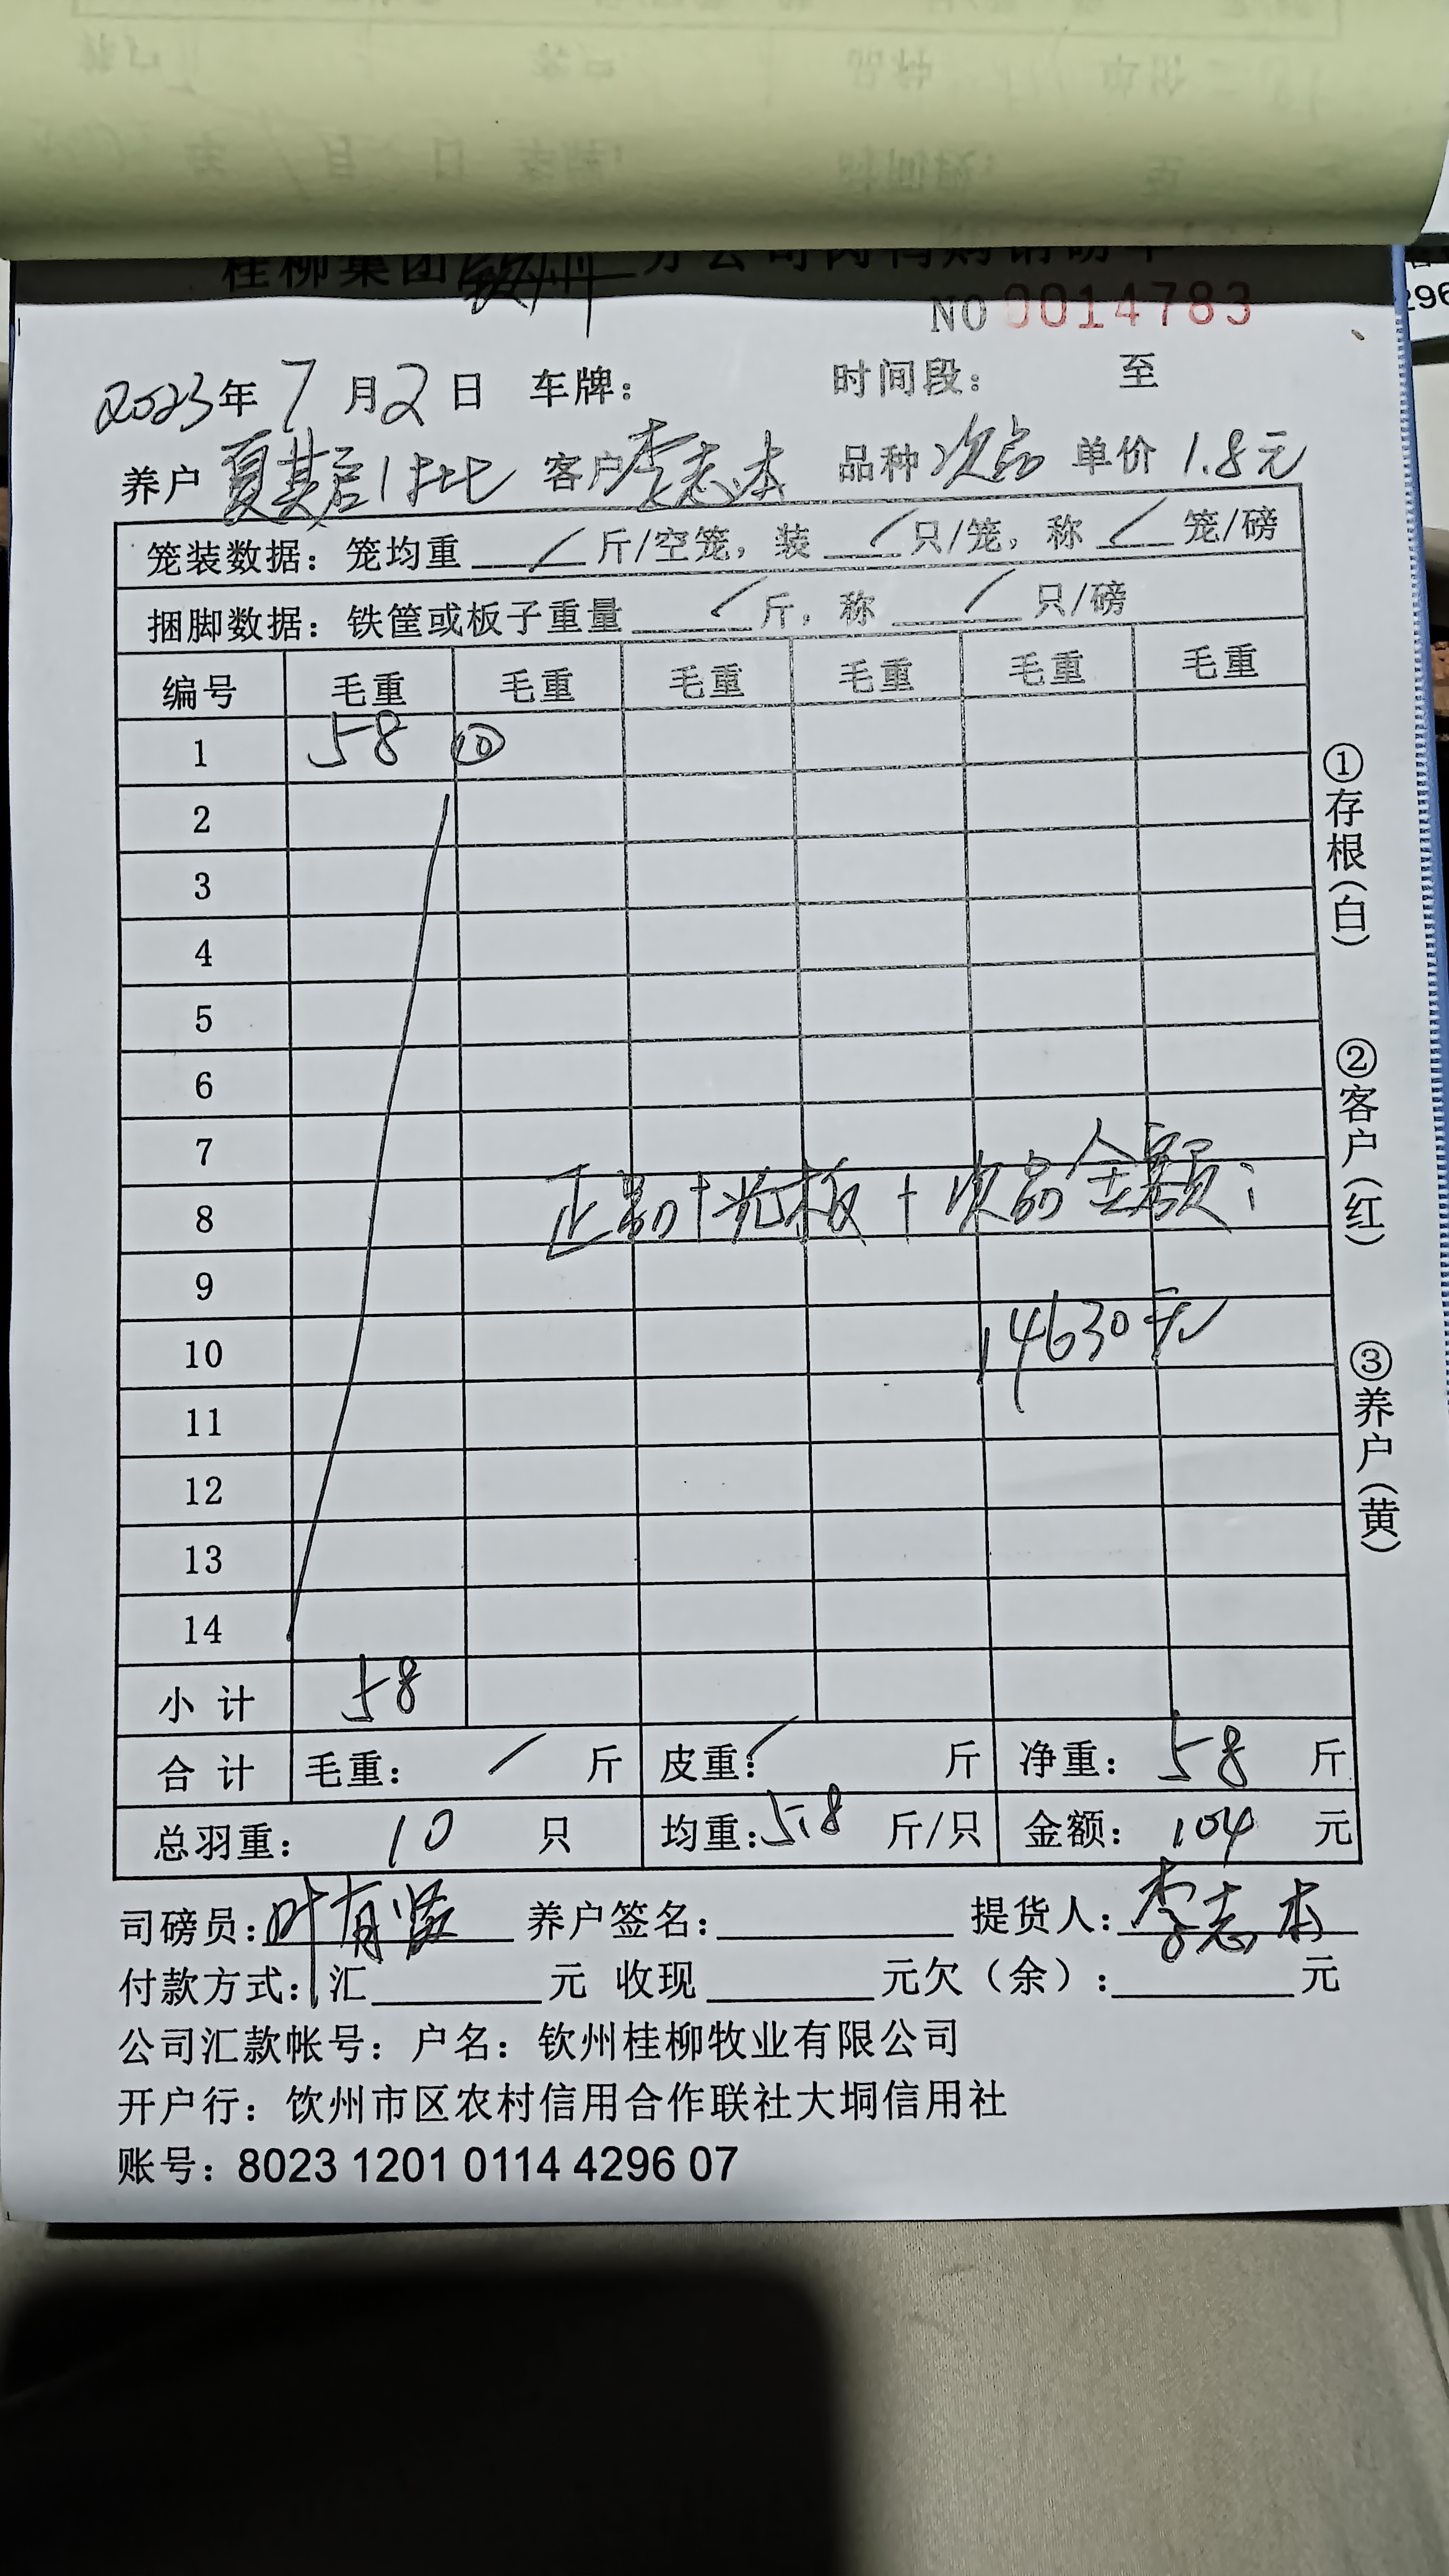 桂柳集团钦州分公司肉鸭购销磅单
NO 0014783
2023年7月2日 车牌： 时间段： 至
养户 夏其启1批 客户 李志本 品种 次品 单价 1.8元
笼装数据：笼均重 / 斤/空笼，装 / 只/笼，称 / 笼/磅
捆脚数据：铁筐或板子重量 / 斤，称 / 只/磅
编号 毛重 毛重 毛重 毛重 毛重 毛重
1 58 ⑩
2
3
4
5
6
7
8 正品+光板+次品金额：
9
10 14630元
11
12
13
14
小计 58
合计 毛重： / 斤 皮重： / 斤 净重：58 斤
总羽重： 10 只 均重：5.8 斤/只 金额：104 元
司磅员：叶有 养户签名： 提货人：李志本
付款方式：汇 元 收现 元欠（余）： 元
公司汇款帐号：户名：钦州桂柳牧业有限公司
开户行：饮州市区农村信用合作联社大垌信用社
账号：8023 1201 0114 4296 07
①存根（白）
②客户（红）
③养户（黄）